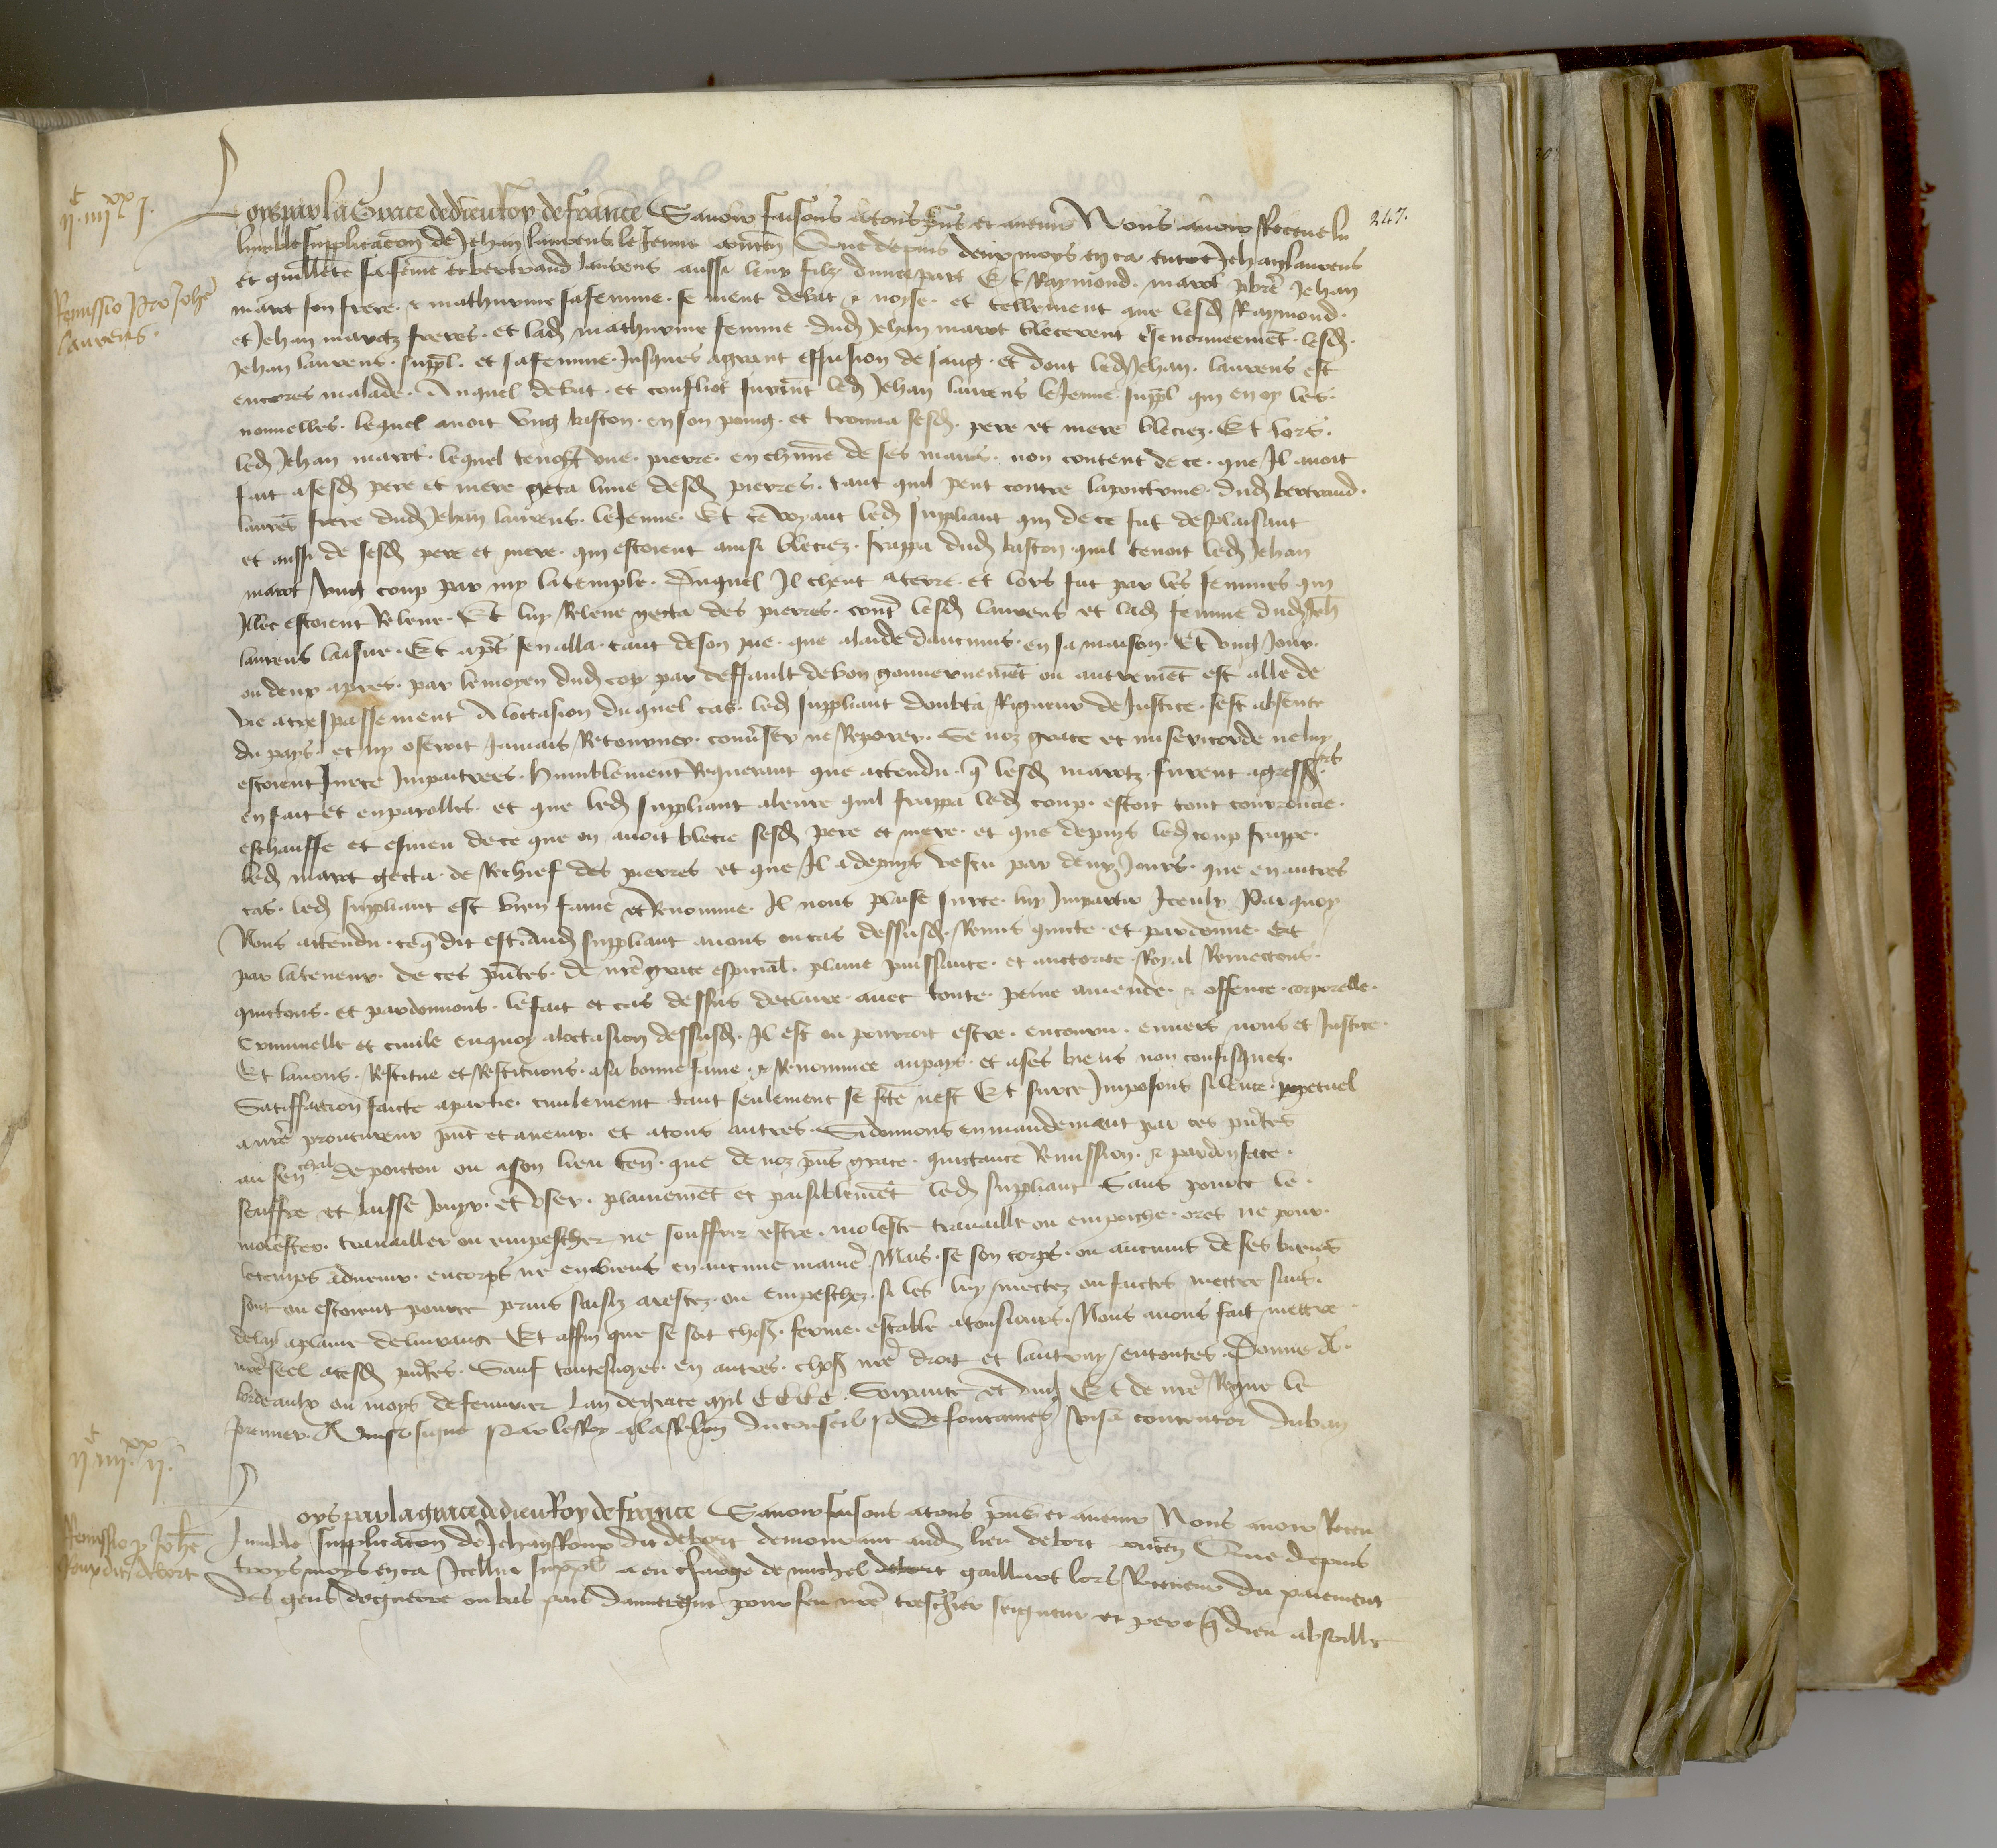 247.
IIc IIIIxx I.
Remissio pro Johe
Laurens.
Loys par la grace de dieu Roy de france Savoir faisons a tous pns et avenir Nous avoir Receue lu
lumble supplicacon de Jehan laurens le Jeune conten Que depuis deux moys en ca entre Jehan laurens
et guillete sa feme et bertrand laurens aussi leur filz dune part Et Raymond marot pbre Jehan
marot son frere & mathurine sa femme se meut debat & noyse et tellement que lesd Raymond
et Jehan marotz freres et lad mathurine femme dud Jehan marot blecerent & enormeemet lesd
Jehan laurens suppl et sa femme Jusques a grant effusion de sang et dont led Jehan laurens est
encores malade Auquel debat et conflict survint led Jehan laurens le Jeune suppl qui en oy les
nouvelles lequel avoit ung baston en son poing et trouva sesd pere et mere bleciez Et lors
led Jehan marot lequel tenoit une pierre en chune de ses mains non content de ce que Il avoit
fait a sesd pere et mere geta lune desd pierres tant quil peut contre la poictrine dud bertrand
laures frere dud Jehan laurens le Jeune Et ce voyant led suppliant qui de ce fut desplaisant
et aussi de sesd pere et mere qui estoient ainsi bleciez frappa dud baston quil tenoit led Jehan
marot ung coup par my la temple Duquel Il cheut a terre et lors fut par les femmes qui
Illec estoient Releve Et luy Releve gecta des pierres cont lesd laurens et lad femme dud Jeh
laurens laisne Et apres sen alla tant de son pie que alaide daucuns en sa maison Et ung Jour
ou deux apres par le moyen dud cop par deffault de bon gouvernemet ou autremet est alle de
vie a trespassement A loccasion duquel cas led suppliant doubta Rigueur de Justice sest absente
du pays et ny oseroit Jamais Retourner converser ne Reparer Se noz grace et misericorde ne luy
estoient sur ce Impartrees humblement Requerant que attendu q lesd marotz furent agresseurs
en fait et en parolles et que led suppliant a leure quil frappa led coup estoit tout courroucie
eschauffe et esmeu de ce que on avoit blecie sesd pere et mere et que depuis led coup frappe
led marot gecta de Rechief des pierres et que Il a depuis vescu par deux Jours que en autres
cas led suppliant est bien fame et Renomme Il nous plaise sur ce luy Impartir Iceulx Parquoy
Nous attendu ce q dit est Aud suppliant avons ou cas dessusd Remis quicte et pardonne Et
par la teneur de ces pntes de nre grace especial plaine puissance et auctorite Royal Remectons
quictons et pardonnons le fait et cas dessus declaire avec toute peine amende & offence corporelle
Criminelle et civile en quoy a loccasion dessusd Il est ou pourroit estre encouru envers nous et Justice
Et lavons Restitue et Restituons a sa bonne fame & Renommee au pays et a ses biens non confisquez
Satisfaction faicte a partie civilement tant seulement se fte nest Et sur ce Imposons silence perpetuel
a nre procureur pnt et avenir et a tous autres Si donnons en mandement par ces pntes
au senchal de poictou ou a son lieuten que de noz pns grace quictance Remission & pardon face
seuffre et laisse Jouyr et user plainemet et paisiblemet led suppliant Sans pource le
molester travailler ou empescher ne souffrir estre moleste travaille ou empesche ores ne pour
le temps advenir en corps ne en biens en aucune maniere Mais se son corps ou aucuns de ses biens
sont ou estoient pource prins saisiz arestez ou empeschez si les luy mectez ou faictes mettre sans
delay a plaine delivrance Et affin que se soit chose ferme estable a tousjours Nous avons fait mettre
nre seel a cesd pntes Sauf toutesvoyes en autres choses nre droit et lautruy en toutes Donne A
bordeaulx ou moys de fevrier Lan de grace mil CCCC soixante et ung Et de nre Regne le
premier Ainsi signe Par le Roy a la Relon du conseil Jo De fontaines Visa contentor duban
IIc IIIIxx II.
Remissio p Johe
Roux dit debort
Loys par la grace de dieu Roy de france Savoir faisons a tous pns et avenir Nous avoir Receu
lumble supplicacon de Jehan Roux dit debort demourant aud lieu debort conten Que depuis
troys moys en ca Icellui suppl a eu charge de michel debort gaillart lors Receveur du paiement
des gens de guerre ou bas pais dauvergne pour feu nre treschier seigneur et pere q dieu absoille